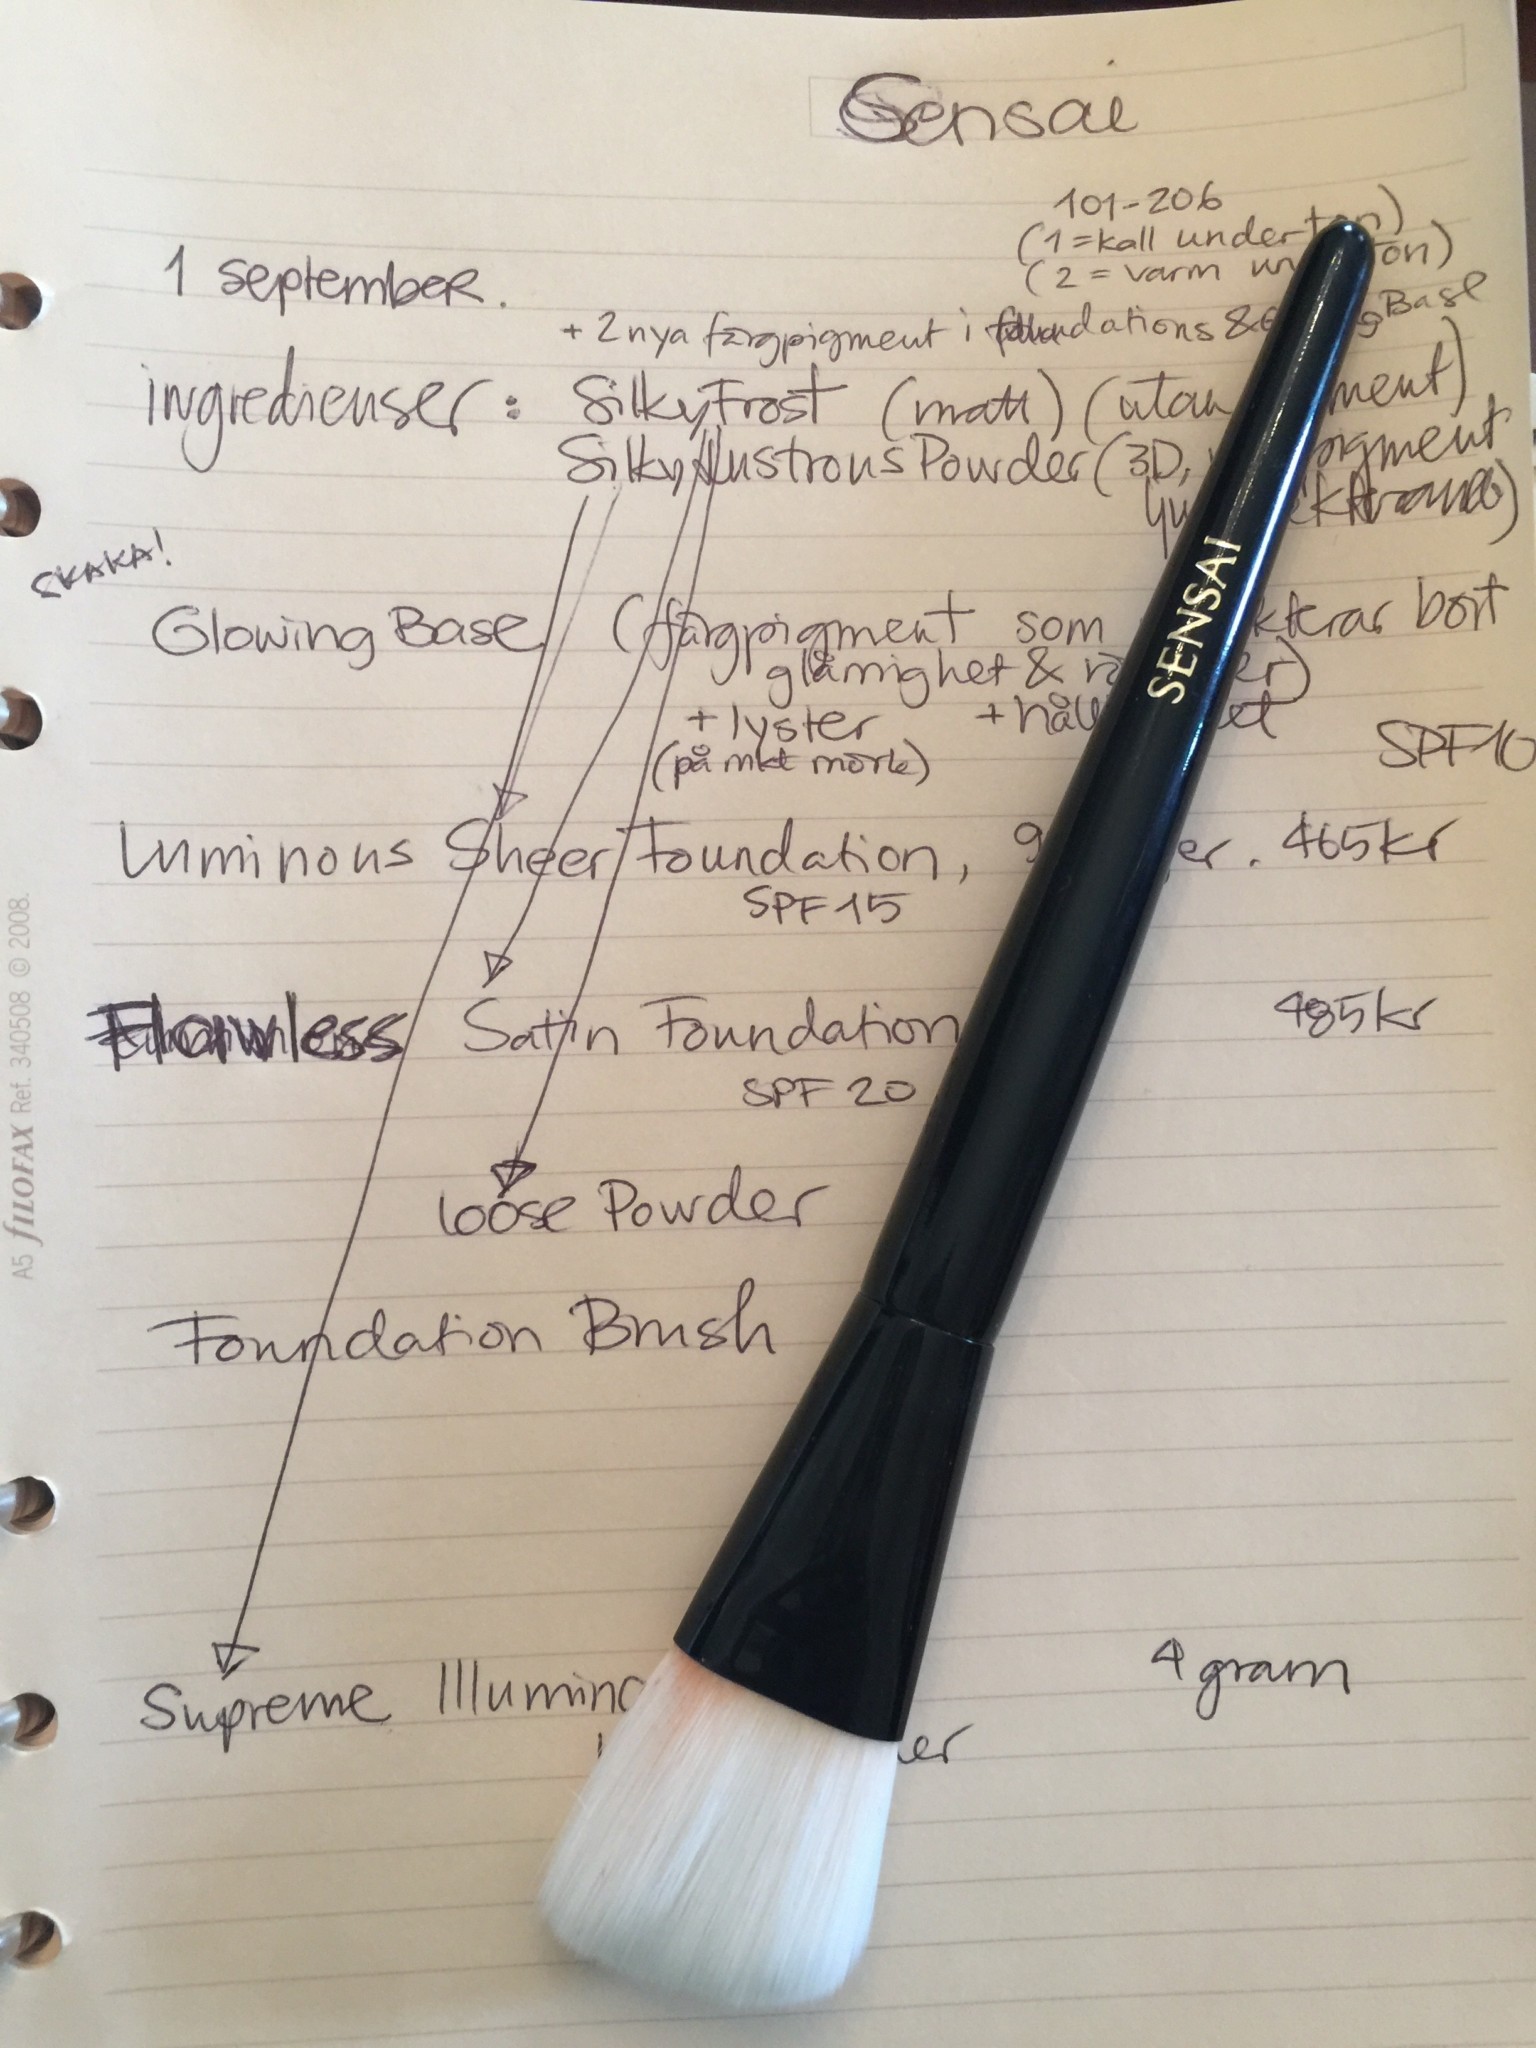 Sensai
101-206
(1=kall underton)
(2 = varm un ton)
1 september.
+ 2 nya färgpigment i foundations & Base
ingredienser: SilkyFrost (matt) (utan ment)
Silky Illustrous Powder (3D, pigment
SKAKA!
Glowing Base (färgpigment som kterar bort
glåmighet & er)
+ lyster + håll et
(på mkt mörk)
SPF10
Luminous Sheer Foundation, 9 er. 465kr
SPF 15
Flawless Satin Foundation 485kr
SPF 20
Loose Powder
Foundation Brush
Supreme Illumina 4 gram
er
SENSAI
A5 FILOFAX Ref. 340508 © 2008.